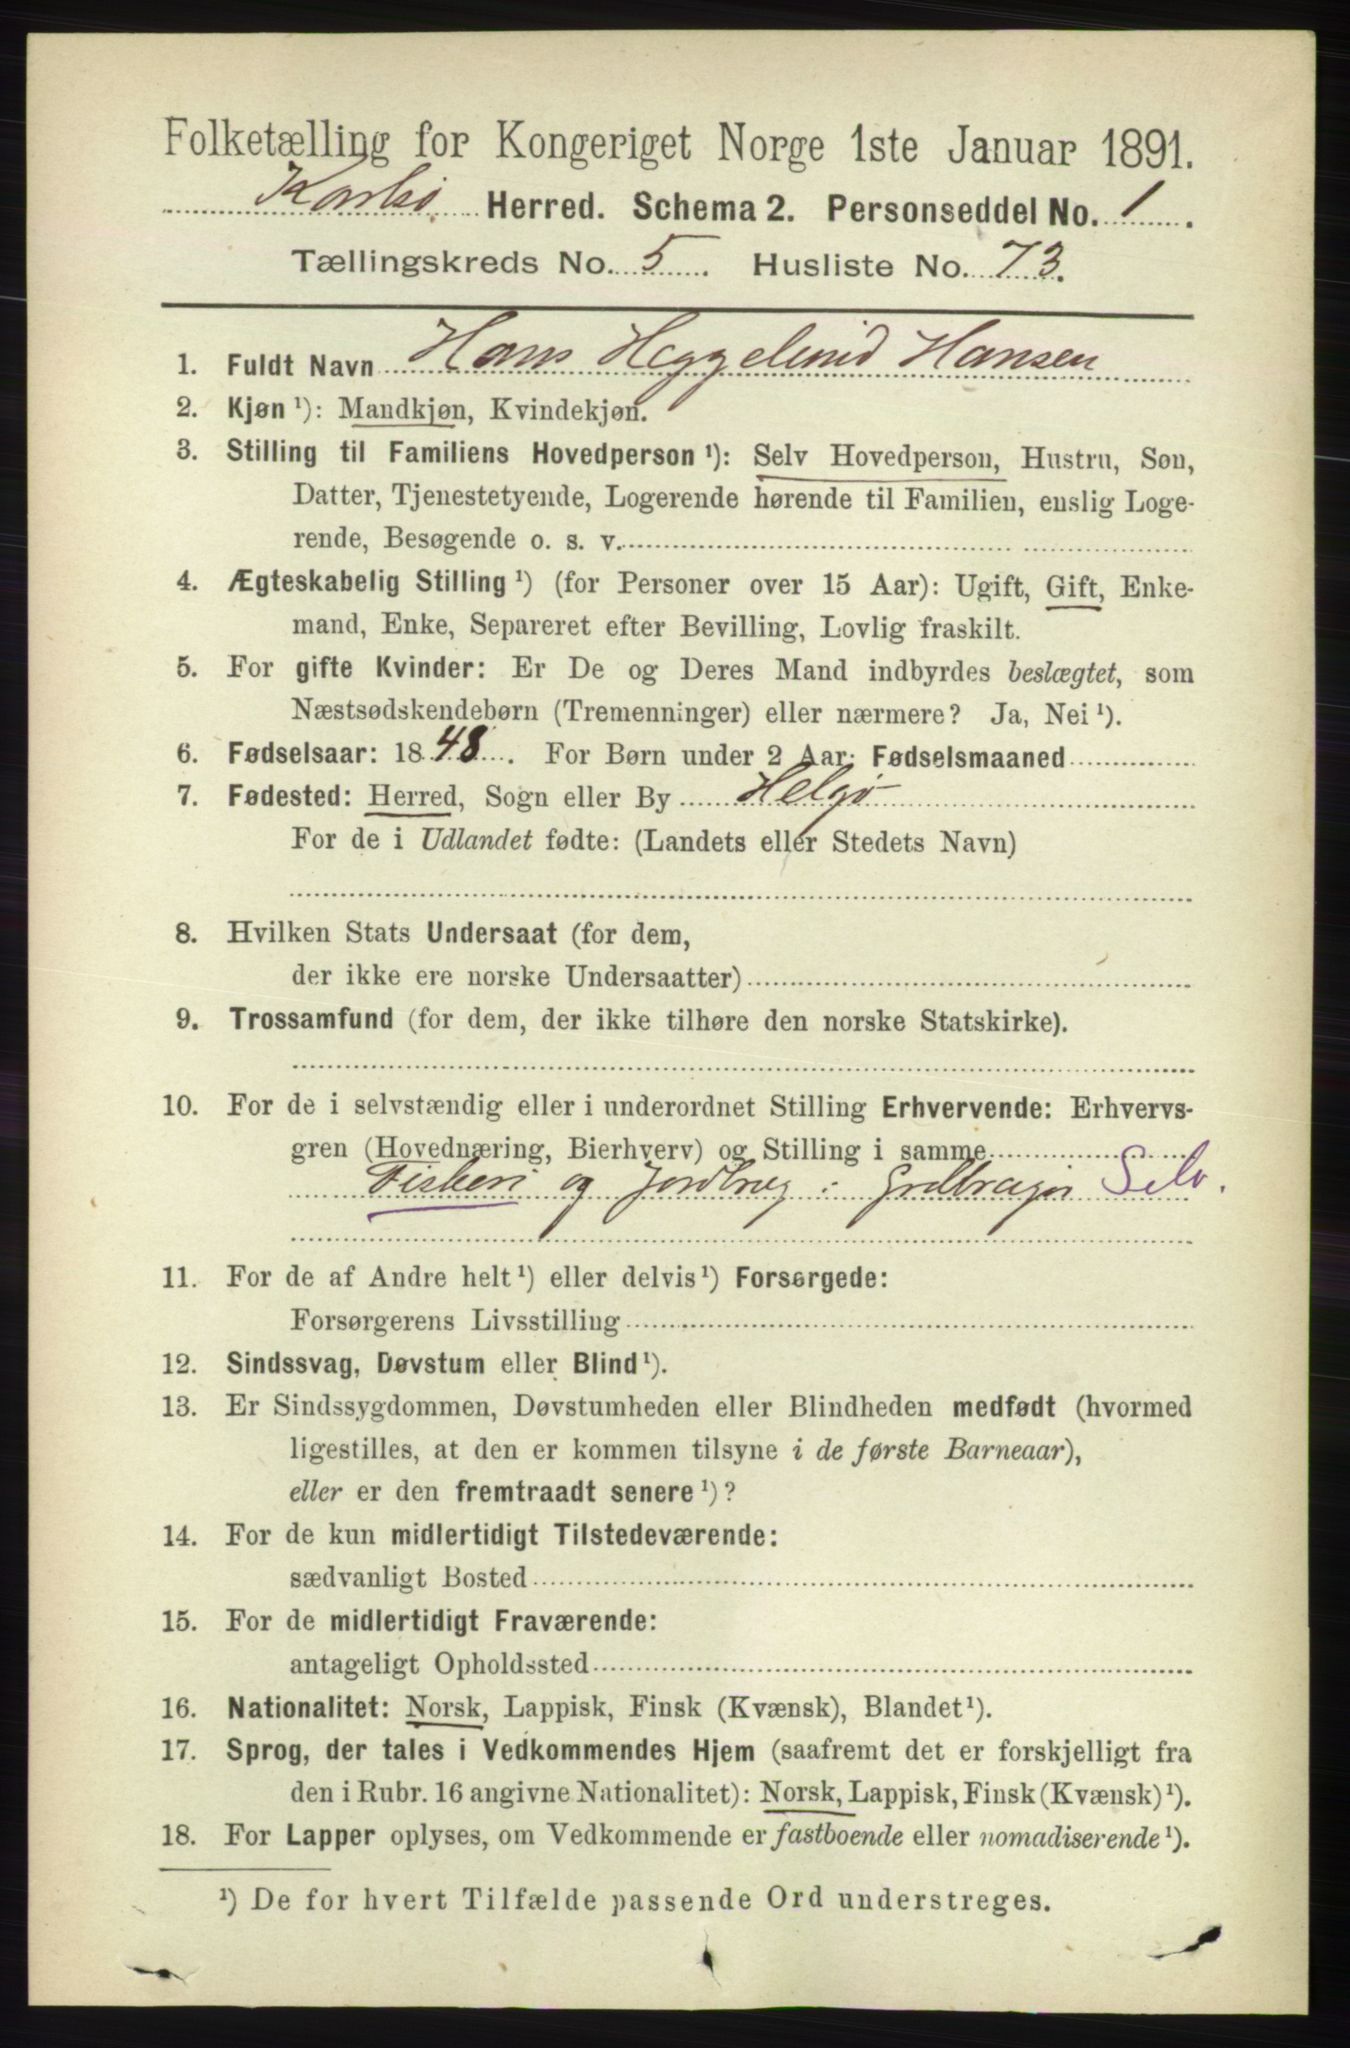 Folketælling for Kongeriget Norge 1ste Januar 1891.
Karlsø Herred. Schema 2. Personseddel No. 1.
Tællingskreds No. 5. Husliste No. 73.
1. Fuldt Navn Hans Heggelund Hansen
2. Kjøn ¹): Mandkjøn, Kvindekjøn.
3. Stilling til Familiens Hovedperson ¹): Selv Hovedperson, Hustru, Søn,
Datter, Tjenestetyende, Logerende hørende til Familien, enslig Loge-
rende, Besøgende o. s. v.
4. Ægteskabelig Stilling ¹) (for Personer over 15 Aar): Ugift, Gift, Enke-
mand, Enke, Separeret efter Bevilling, Lovlig fraskilt.
5. For gifte Kvinder: Er De og Deres Mand indbyrdes beslægtet, som
Næstsødskendebørn (Tremenninger) eller nærmere? Ja, Nei ¹).
6. Fødselsaar: 1848. For Børn under 2 Aar: Fødselsmaaned
7. Fødested: Herred, Sogn eller By Helgø
For de i Udlandet fødte: (Landets eller Stedets Navn)
8. Hvilken Stats Undersaat (for dem,
der ikke ere norske Undersaatter)
9. Trossamfund (for dem, der ikke tilhøre den norske Statskirke).
10. For de i selvstændig eller i underordnet Stilling Erhvervende: Erhvervs-
gren (Hovednæring, Bierhverv) og Stilling i samme
Fiskeri og Jordbrug : Selv.
11. For de af Andre helt ¹) eller delvis ¹) Forsørgede:
Forsørgerens Livsstilling
12. Sindssvag, Døvstum eller Blind ¹).
13. Er Sindssygdommen, Døvstumheden eller Blindheden medfødt (hvormed
ligestilles, at den er kommen tilsyne i de første Barneaar),
eller er den fremtraadt senere ¹)?
14. For de kun midlertidigt Tilstedeværende:
sædvanligt Bosted
15. For de midlertidigt Fraværende:
antageligt Opholdssted
16. Nationalitet: Norsk, Lappisk, Finsk (Kvænsk), Blandet ¹).
17. Sprog, der tales i Vedkommendes Hjem (saafremt det er forskjelligt fra
den i Rubr. 16 angivne Nationalitet): Norsk, Lappisk, Finsk (Kvænsk) ¹).
18. For Lapper oplyses, om Vedkommende er fastboende eller nomadiserende ¹).
¹) De for hvert Tilfælde passende Ord understreges.